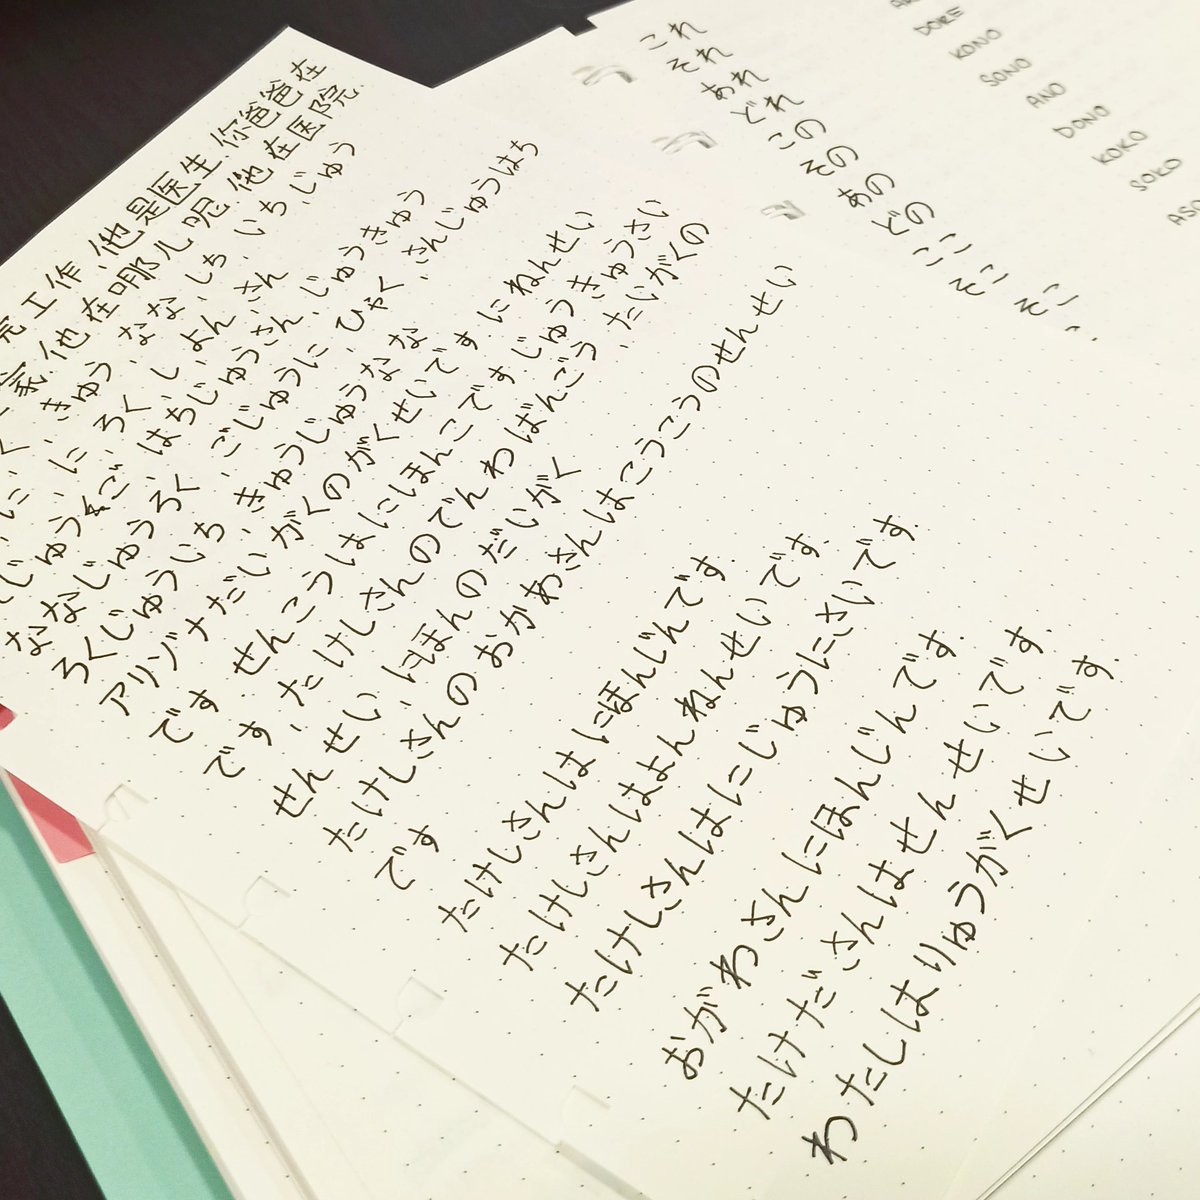 工作.他是医生.你爸爸在
家.他在哪儿呢.他在医院.
きゅう.なな.しち.いち.じゅう
に.ろく.し.よん.さん
はちじゅうさん.じゅうきゅう
ななじゅうろく.ごじゅうに.ひゃく.さんじゅうはち
ろくじゅういち.きゅうじゅうなな
アリゾナだいがくのがくせいです.にねんせい
です.せんこうはにほんごです.じゅうきゅうさい
です.たけしさんのでんわばんごう.たいがくの
せんせい.にほんのだいがく
たけしさんのおかあさんはこうこうのせんせい
です
たけしさんはにほんじんです.
たけしさんはよんねんせいです.
たけしさんはにじゅうにさいです.
おがわさんにほんじんです.
たけださんはせんせいです.
わたしはりゅうがくせいです.
これ
それ
あれ
どれ
この
その
あの
どの
ここ
そこ
DORE
KONO
SONO
ANO
DONO
KOKO
SOKO